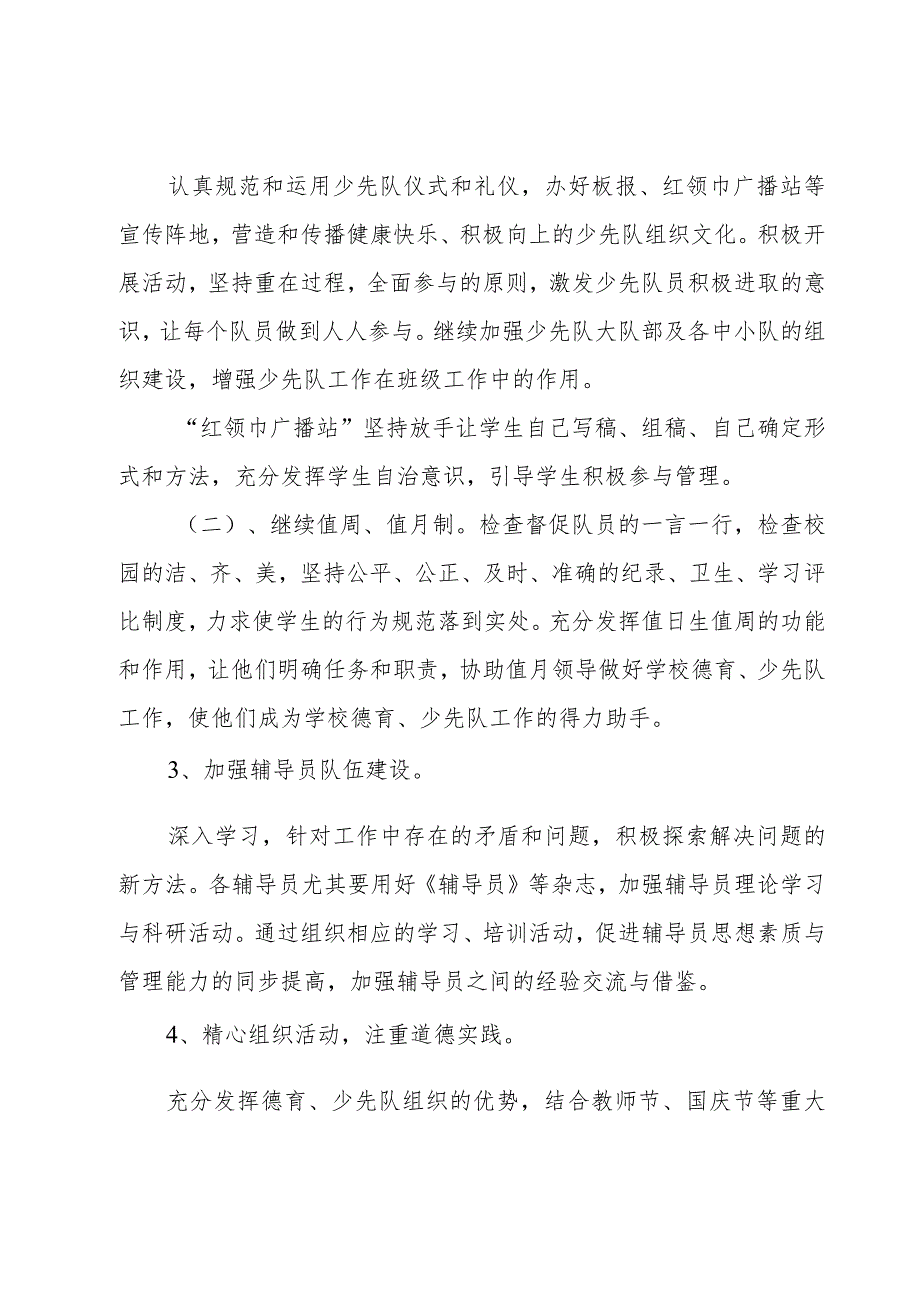 认真规范和运用少先队仪式和礼仪，办好板报、红领巾广播站等
宣传阵地，营造和传播健康快乐、积极向上的少先队组织文化。积极开
展活动，坚持重在过程，全面参与的原则，激发少先队员积极进取的意
识，让每个队员做到人人参与。继续加强少先队大队部及各中小队的组
织建设，增强少先队工作在班级工作中的作用。
“红领巾广播站”坚持放手让学生自己写稿、组稿、自己确定形
式和方法，充分发挥学生自治意识，引导学生积极参与管理。
（二）、继续值周、值月制。检查督促队员的一言一行，检查校
园的洁、齐、美，坚持公平、公正、及时、准确的纪录、卫生、学习评
比制度，力求使学生的行为规范落到实处。充分发挥值日生值周的功能
和作用，让他们明确任务和职责，协助值月领导做好学校德育、少先队
工作，使他们成为学校德育、少先队工作的得力助手。
3、加强辅导员队伍建设。
深入学习，针对工作中存在的矛盾和问题，积极探索解决问题的
新方法。各辅导员尤其要用好《辅导员》等杂志，加强辅导员理论学习
与科研活动。通过组织相应的学习、培训活动，促进辅导员思想素质与
管理能力的同步提高，加强辅导员之间的经验交流与借鉴。
4、精心组织活动，注重道德实践。
充分发挥德育、少先队组织的优势，结合教师节、国庆节等重大